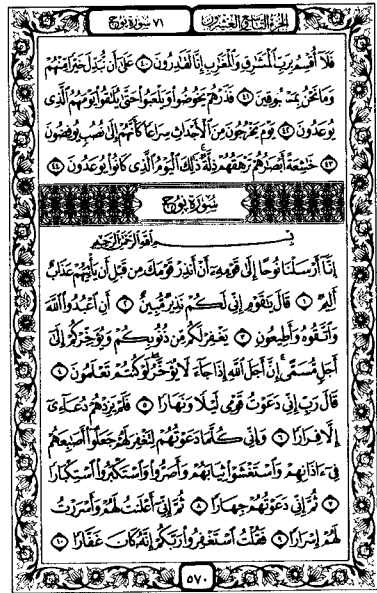 الجزء التاسع والعشرون ٧١ سورة نوح
فَلَا أُقْسِمُ بِرَبِّ الْمَشَارِقِ وَالْمَغَارِبِ إِنَّا لَقَادِرُونَ ٤٠ عَلَى أَنْ نُبَدِّلَ خَيْرًا مِنْهُمْ
وَمَا نَحْنُ بِمَسْبُوقِينَ ٤١ فَذَرْهُمْ يَخُوضُوا وَيَلْعَبُوا حَتَّى يُلَاقُوا يَوْمَهُمُ الَّذِي
يُوعَدُونَ ٤٢ يَوْمَ يَخْرُجُونَ مِنَ الْأَجْدَاثِ سِرَاعًا كَأَنَّهُمْ إِلَى نُصُبٍ يُوفِضُونَ
٤٣ خَاشِعَةً أَبْصَارُهُمْ تَرْهَقُهُمْ ذِلَّةٌ ذَلِكَ الْيَوْمُ الَّذِي كَانُوا يُوعَدُونَ ٤٤
سورة نوح
بِسْمِ اللَّهِ الرَّحْمَنِ الرَّحِيمِ
إِنَّا أَرْسَلْنَا نُوحًا إِلَى قَوْمِهِ أَنْ أَنْذِرْ قَوْمَكَ مِنْ قَبْلِ أَنْ يَأْتِيَهُمْ عَذَابٌ
أَلِيمٌ ١ قَالَ يَا قَوْمِ إِنِّي لَكُمْ نَذِيرٌ مُبِينٌ ٢ أَنِ اعْبُدُوا اللَّهَ
وَاتَّقُوهُ وَأَطِيعُونِ ٣ يَغْفِرْ لَكُمْ مِنْ ذُنُوبِكُمْ وَيُؤَخِّرْكُمْ إِلَى
أَجَلٍ مُسَمًّى إِنَّ أَجَلَ اللَّهِ إِذَا جَاءَ لَا يُؤَخَّرُ لَوْ كُنْتُمْ تَعْلَمُونَ ٤
قَالَ رَبِّ إِنِّي دَعَوْتُ قَوْمِي لَيْلًا وَنَهَارًا ٥ فَلَمْ يَزِدْهُمْ دُعَائِي
إِلَّا فِرَارًا ٦ وَإِنِّي كُلَّمَا دَعَوْتُهُمْ لِتَغْفِرَ لَهُمْ جَعَلُوا أَصَابِعَهُمْ
فِي آذَانِهِمْ وَاسْتَغْشَوْا ثِيَابَهُمْ وَأَصَرُّوا وَاسْتَكْبَرُوا اسْتِكْبَارًا
٧ ثُمَّ إِنِّي دَعَوْتُهُمْ جِهَارًا ٨ ثُمَّ إِنِّي أَعْلَنْتُ لَهُمْ وَأَسْرَرْتُ
لَهُمْ إِسْرَارًا ٩ فَقُلْتُ اسْتَغْفِرُوا رَبَّكُمْ إِنَّهُ كَانَ غَفَّارًا ١٠
٥٧٠